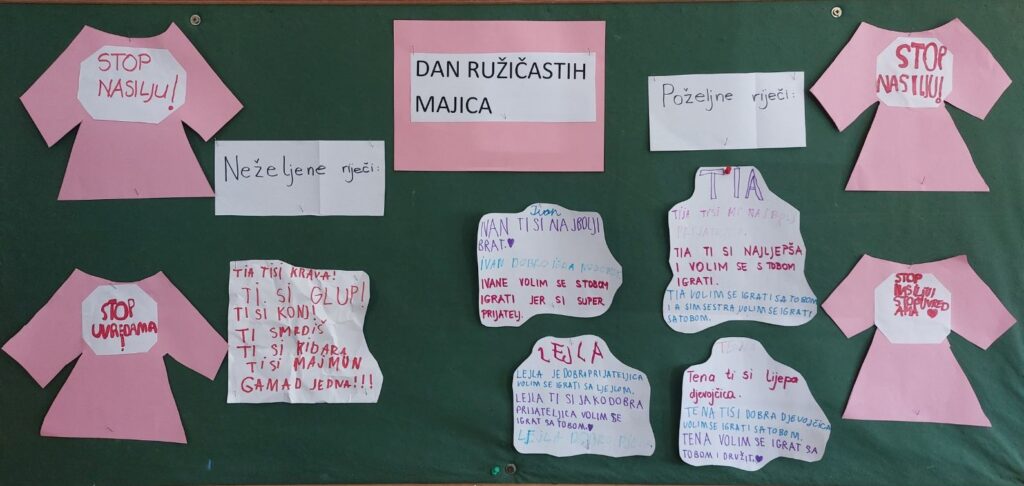 STOP
NASILJU!
DAN RUŽIČASTIH
MAJICA
Poželjne riječi:
STOP
NASILJU!
Neželjene riječi:
STOP
UVREDAMA
!
TIA TI SI KRAVA!
TI SI GLUP!
TI SI KONJ!
TI SMRDIŠ
TI SI
TI SI MAJMUN
GAMAD JEDNA!!!
Ivan
IVAN TI SI NAJBOLJI
BRAT.♥
IVAN DOBRO
IVANE VOLIM SE S TOBOM
IGRATI JER SI SUPER
PRIJATELJ.
TIA
TIJA TI SI MI NAJBOLJ
TIA TI SI NAJLJEPŠA
I VOLIM SE S TOBOM
IGRATI.
TIA VOLIM SE IGRATI SA TOBOM
I A SIM SESTRA VOLIM SE IGRATI
SA TOBOM.
LEJLA
LEJLA JE DOBRA PRIJATELJICA
VOLIM SE IGRATI SA LJEJLOM.
LEJLA TI SI JAKO DOBRA
PRIJATELJICA VOLIM SE
IGRAT SA TOBOM.♥
LEJLA DOBRO
Tena ti si lijepa
djevojčica.
TENA TI SI DOBRA DJEVOJČICA
VOLIM SE IGRATI SA TOBOM.
TENA VOLIM SE IGRAT SA
TOBOM I DRUŽIT.♥
STOP
NASILJU
STOP UVRED
AMA ♥